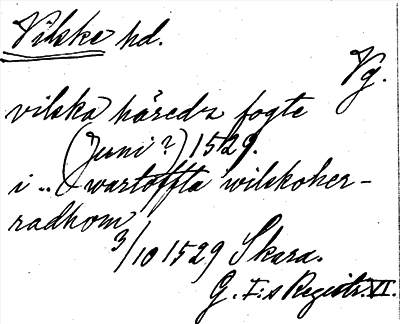 Vilske hd.
Vg.
vilska häredz fogte
(Juni?) 1529.
i .. wartoffta wilskoher-
radhom
3/10 1529 Skara.
G. I:s Registr. VI.